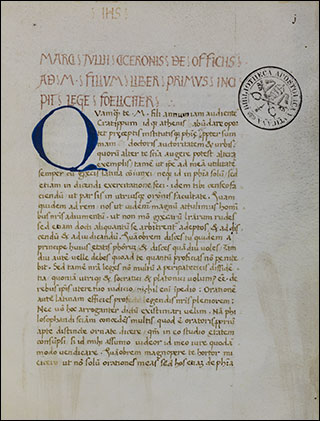 IHS
j
MARCI TULLII CICERONIS DE OFFICIIS
AD M FILIUM LIBER PRIMUS INCI
PIT LEGE FOELICITER
BIBLIOTHECA APOSTOLICA VATICANA
Quamq te M fili annum iam audiente
Cratippum idq athenis abundare oportet
preceptis institutisq phie propter sum
mam doctoris auctoritatem & urbis
quorum alter te scia augere potest altera
exemplis tame ut ipe ad mea utilitate
semper cu grecis latina coniunxi neq id in phia solu sed
etiam in dicendi exercitatione feci idem tibi censeo fa
ciendu ut par sis in utriusq orationis facultate Quam
quidem ad rem nos ut uidemur magnu attulimus homi
bus nris adiumentu ut non mo grecaru lraru rudes
sed etiam docti aliquantu se arbitrent adeptos & ad
& ad iudicandu Quaobrem disces tu quidem a
principe huius etatis phoru & disces qua diu uoles tam
diu aute uelle debes quoad te quantu proficias no penite
bit Sed tame nra legens no multu a peripateticis disside
tia quonia utriq & socratici & platonici uolum
rebus ipis utere tuo iudicio nichil eni ipedio Oratione
aute latinam efficies profecto legendis nris pleniorem
Nec uo hoc arroganter dictu existimari uelim Na phi
losophandi sciam concedes multis quod e oratoris
apte distincte ornate dicere qm in eo studio etatem
consupsi si id mihi assumo uideor id meo iure quoda
modo uendicare Quaobrem magnopere te hortor mi
cicero ut no solu orationes meas sed hos etia de phia